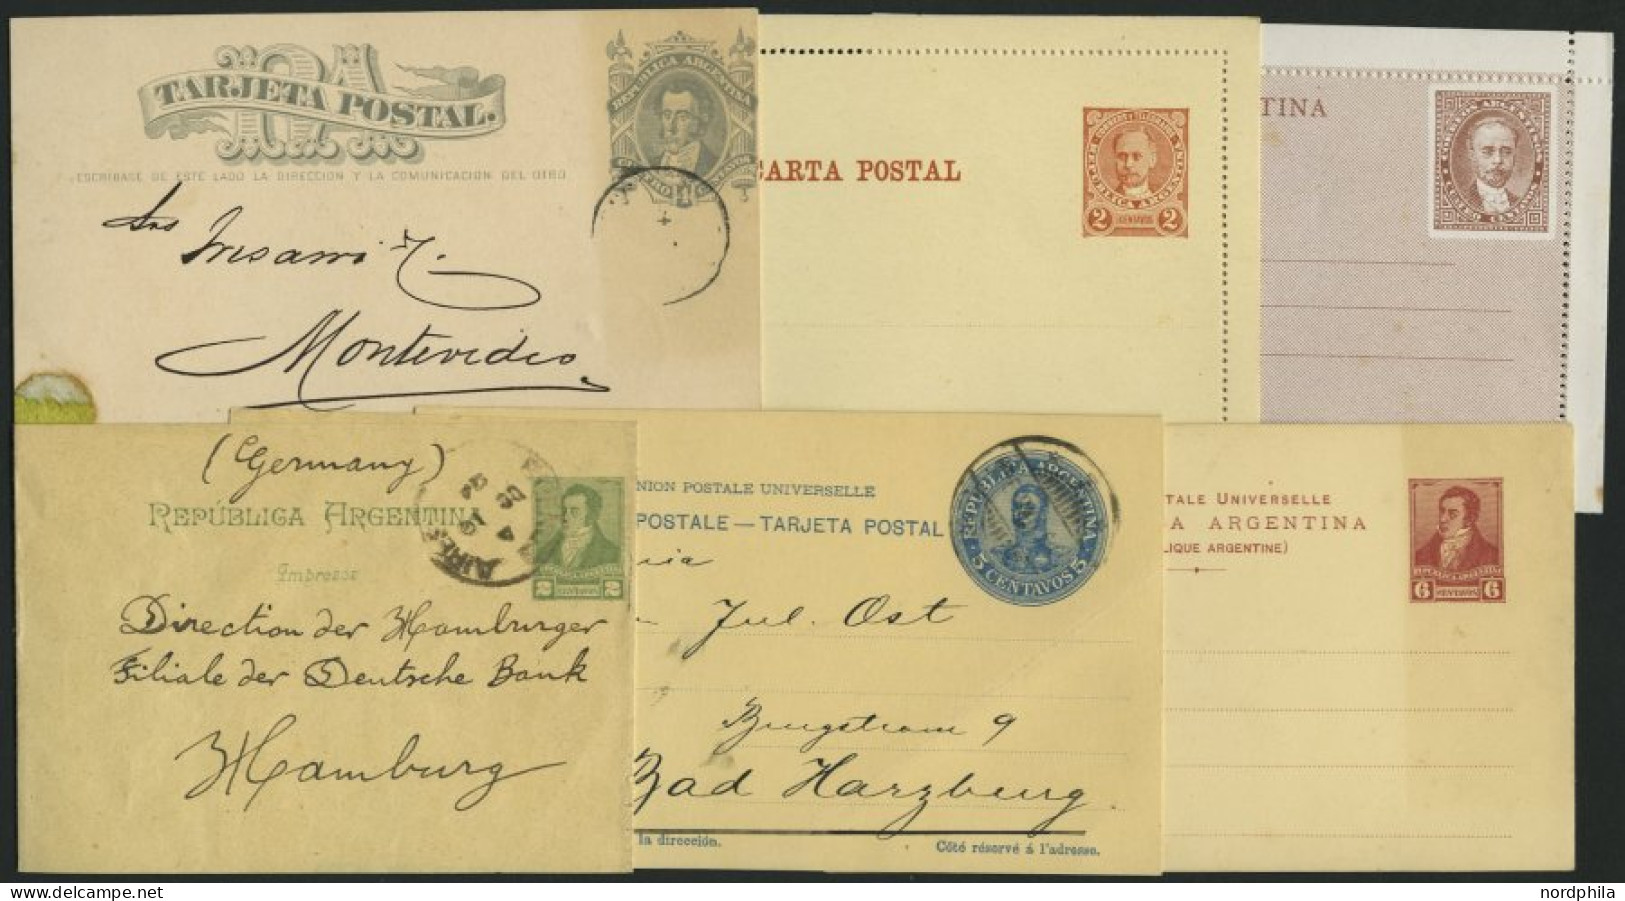 RA
TARJETA POSTAL.
ESCRIBASE DE ESTE LADO LA DIRECCION Y LA COMUNICACION DEL OTRO
REPUBLICA ARGENTINA
CUATRO CENTAVOS
4
Montevideo
CARTA POSTAL
CORREOS Y TELEGRAFOS
REPUBLICA ARGENTINA
2 CENTAVOS 2
TINA
CORREOS ARGENTINOS
CUATRO CENTAVOS
(Germany)
REPÚBLICA ARGENTINA
Impresos
2 CENTAVOS 2
AIRES
Direction der Hamburger
Filiale der Deutsche Bank
Hamburg
NION POSTALE UNIVERSELLE
POSTALE — TARJETA POSTAL
REPUBLICA ARGENTINA
5 CENTAVOS 5
Jul. Ost
9
Bad Harzburg.
la dirección.
Côté réservé á l'adresse.
TALE UNIVERSELLE
A ARGENTINA
LIQUE ARGENTINE)
REPUBLICA ARGENTINA
6 CENTAVOS 6
nordphila